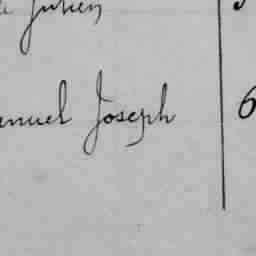 Julien
anuel Joseph 6